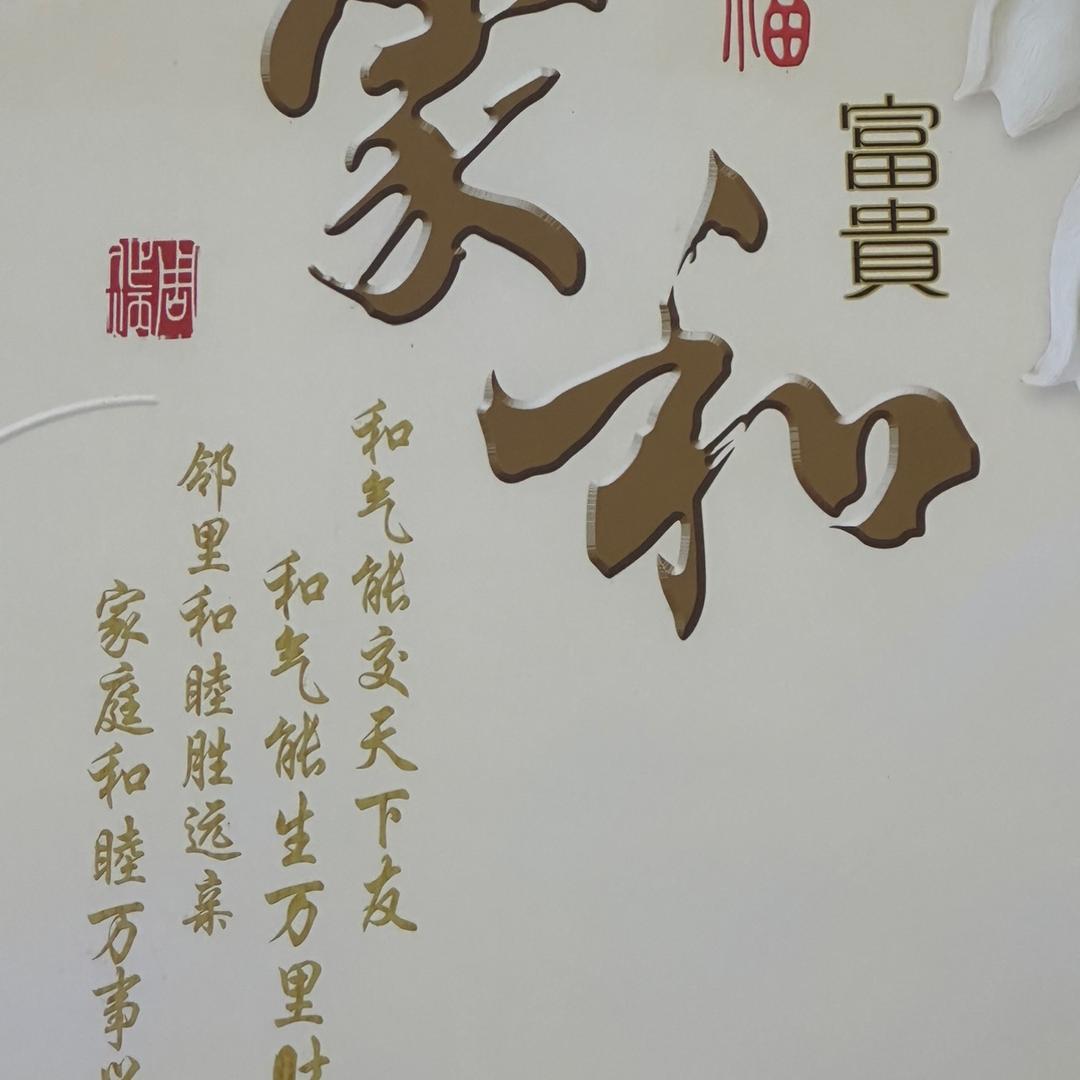 家和
福
富貴
和气能交天下友
和气能生万里财
邻里和睦胜远亲
家庭和睦万事